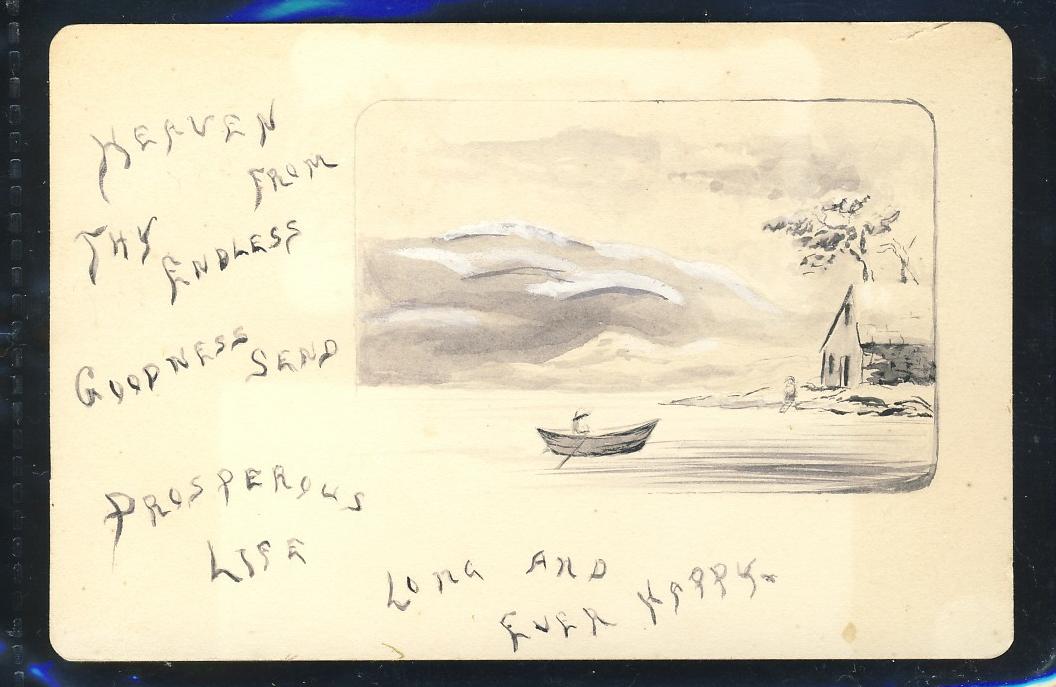 HEAVEN
FROM
THY ENDLESS
GOODNESS SEND
PROSPEROUS
LIFE
LONG AND
EVER HAPPY